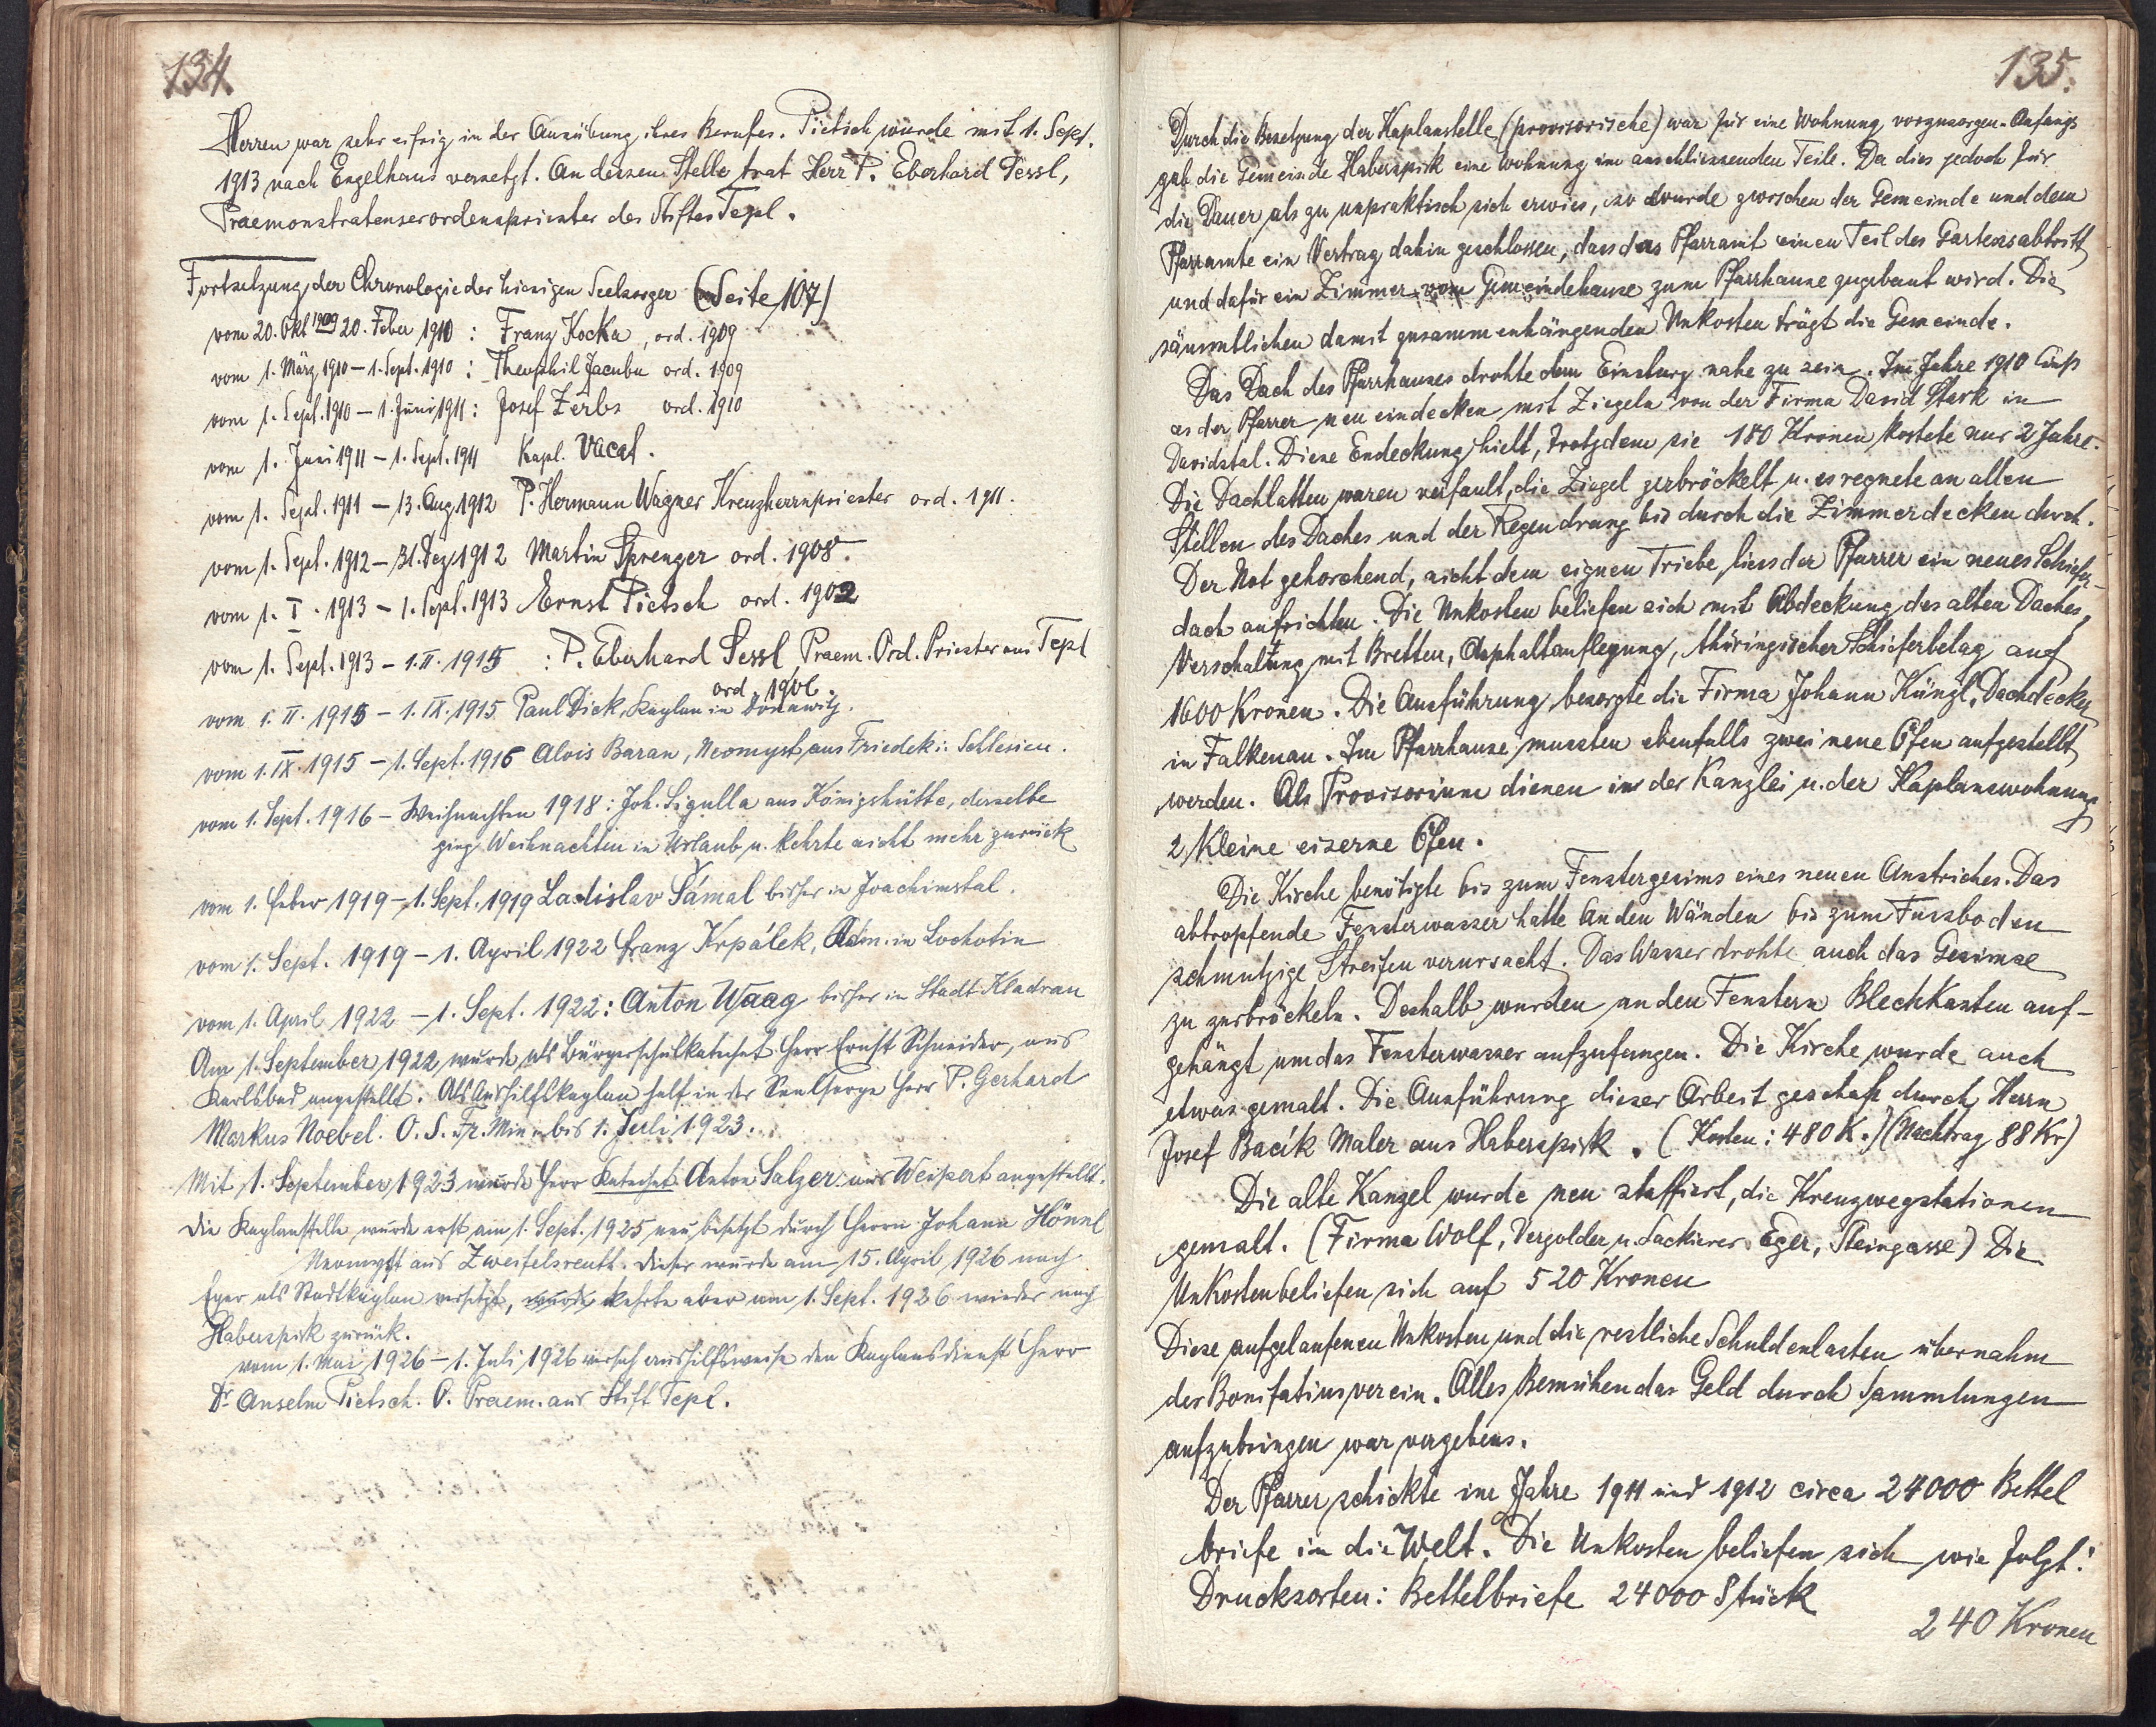 134.
Herren war sehr eifrig in der Ausübung ihres Berufes. Pietsch wurde mit 1. Sept.
1913 nach Engelhaus versetzt. An dessen Stelle trat Herr P. Eberhard Sessl,
Praemonstratenserordenspriester des Stiftes Tepl.
Fortsetzung der Chronologie der hiesigen Seelsorger (Seite 107)
vom 20. Okt 1909 20. Feber 1910 : Franz Kocka, ord. 1909
vom 1. März 1910 – 1. Sept. 1910 : Theophil Jacubu ord. 1909
vom 1. Sept. 1910 – 1. Juni 1911 : Josef Zerbs ord. 1910
vom 1. Juni 1911 – 1. Sept. 1911 Kapl. vacat.
vom 1. Sept. 1911 – 13. Aug. 1912 P. Hermann Wagner Kreuzherrnpriester ord. 1911.
vom 1. Sept. 1912 – 31. Dez. 1912 Martin Sprenger ord. 1908.
vom 1. I. 1913 – 1. Sept. 1913 Ernst Pietsch ord. 1902
vom 1. Sept. 1913 – 1. II. 1915 : P. Eberhard Sessl Praem. Ord. Priester aus Tepl
ord. 1906.
vom 1. II. 1915 – 1. IX. 1915 Paul Dick, Kaplan in Donawitz.
vom 1. IX. 1915 – 1. Sept. 1916 Alois Baran, Neomyst aus Friedek i. Schlesien.
vom 1. Sept. 1916 – Weihnachten 1918 : Joh. Sigulla aus Königshütte, derselbe
ging Weihnachten in Urlaub u. kehrte nicht mehr zurück
vom 1. Feber 1919 – 1. Sept. 1919 Ladislav Šámal bisher in Joachimstal.
vom 1. Sept. 1919 – 1. April 1922 Franz Krpálek, Adm. in Lochotin
vom 1. April 1922 – 1. Sept. 1922 : Anton Waag bisher in Stadt Kladrau
Am 1. September 1922 wurde als Bürgerschulkatechet Herr Ernst Schneider, aus
Karlsbad angestellt. Als Aushilfskaplan half in der Seelsorge Herr P. Gerhard
Markus Noebel. O. S. Fr. Min. bis 1. Juli 1923.
Mit 1. September 1923 wurde Herr Katechet Anton Salzer aus Weipert angestellt.
Die Kaplanstelle wurde erst am 1. Sept. 1925 neu besetzt durch Herrn Johann Hönnl
Neomyst aus Zweifelsreuth. Dieser wurde am 15. April 1926 nach
Eger als Stadtkaplan versetzt, wurde kehrte aber am 1. Sept. 1926 wieder nach
Haberspirk zurück.
vom 1. Mai 1926 – 1. Juli 1926 versah aushilfsweise den Kaplansdienst Herr
Dr Anselm Pietsch. O. Praem. aus Stift Tepl.
135.
Durch die Besetzung der Kaplanstelle (provisorische) war für eine Wohnung vorzusorgen. Anfangs
gab die Gemeinde Haberspirk eine Wohnung im anschliessenden Teile. Da dies jedoch für
die Dauer als zu unpraktisch sich erwies, so wurde zwischen der Gemeinde und dem
Pfarramte ein Vertrag dahin geschlossen, dass das Pfarramt einen Teil des Gartens abtritt
und dafür ein Zimmer vom Gemeindehause zum Pfarrhause zugebaut wird. Die
sämmtlichen damit zusammenhängenden Unkosten trägt die Gemeinde.
Das Dach des Pfarrhauses drohte dem Einsturz nahe zu sein. Im Jahre 1910 liess
es der Pfarrer neu eindecken mit Ziegeln von der Firma David Stark in
Davidstal. Diese Endeckung hielt, trotzdem sie 180 Kronen kostete nur 2 Jahre.
Die Dachlatten waren verfault, die Ziegel zerbröckelt u. es regnete an allen
Stellen des Daches und der Regen drang bis durch die Zimmerdecken durch.
Der Not gehorchend, nicht dem eignen Triebe, liess der Pfarrer ein neues Schiefer-
dach aufrichten. Die Unkosten beliefen sich mit Abdeckung des alten Daches,
Verschaltung mit Brettern, Asphaltauflegung, thüringischer Schieferbelag auf
1600 Kronen. Die Ausführung besorgte die Firma Johann Künzl, Dachdecker
in Falkenau. Im Pfarrhause mussten ebenfalls zwei neue Öfen aufgestellt
werden. Als Provisorium dienen in der Kanzlei u. der Kaplanswohnung
2 kleine eiserne Öfen.
Die Kirche benötigte bis zum Fenstergesims eines neuen Anstriches. Das
abtropfende Fensterwasser hatte an den Wänden bis zum Fussboden
schmutzige Streifen verursacht. Das Wasser drohte auch das Gesimse
zu zerbröckeln. Deshalb wurden an den Fenstern Blechkasten auf-
gehängt um das Fensterwasser aufzufangen. Die Kirche wurde auch
etwas gemalt. Die Ausführung dieser Arbeit geschah durch Herrn
Josef Bacík Maler aus Haberspirk. (Kosten : 480 K.) (Nachtrag 88 Kr)
Die alte Kanzel wurde neu staffiert, die Kreuzwegstationen
gemalt. (Firma Wolf, Vergolder u. Lackierer Eger, Steingasse) Die
Unkosten beliefen sich auf 520 Kronen
Diese aufgelaufenen Unkosten und die restliche Schuldenlasten übernahm
der Bonifatiusverein. Alles Bemühen das Geld durch Sammlungen
aufzubringen war vergebens.
Der Pfarrer schickte im Jahre 1911 und 1912 circa 24000 Bettel
briefe in die Welt. Die Unkosten beliefen sich wie folgt :
Drucksorten : Bettelbriefe 24000 Stück
240 Kronen